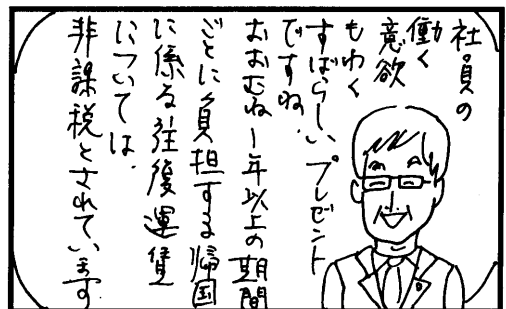 社員の
働く
意欲
もわく
すばらしいプレゼント
ですね。
おおむね1年以上の期間
ごとに負担する帰国
に係る往復運賃
については、
非課税とされています